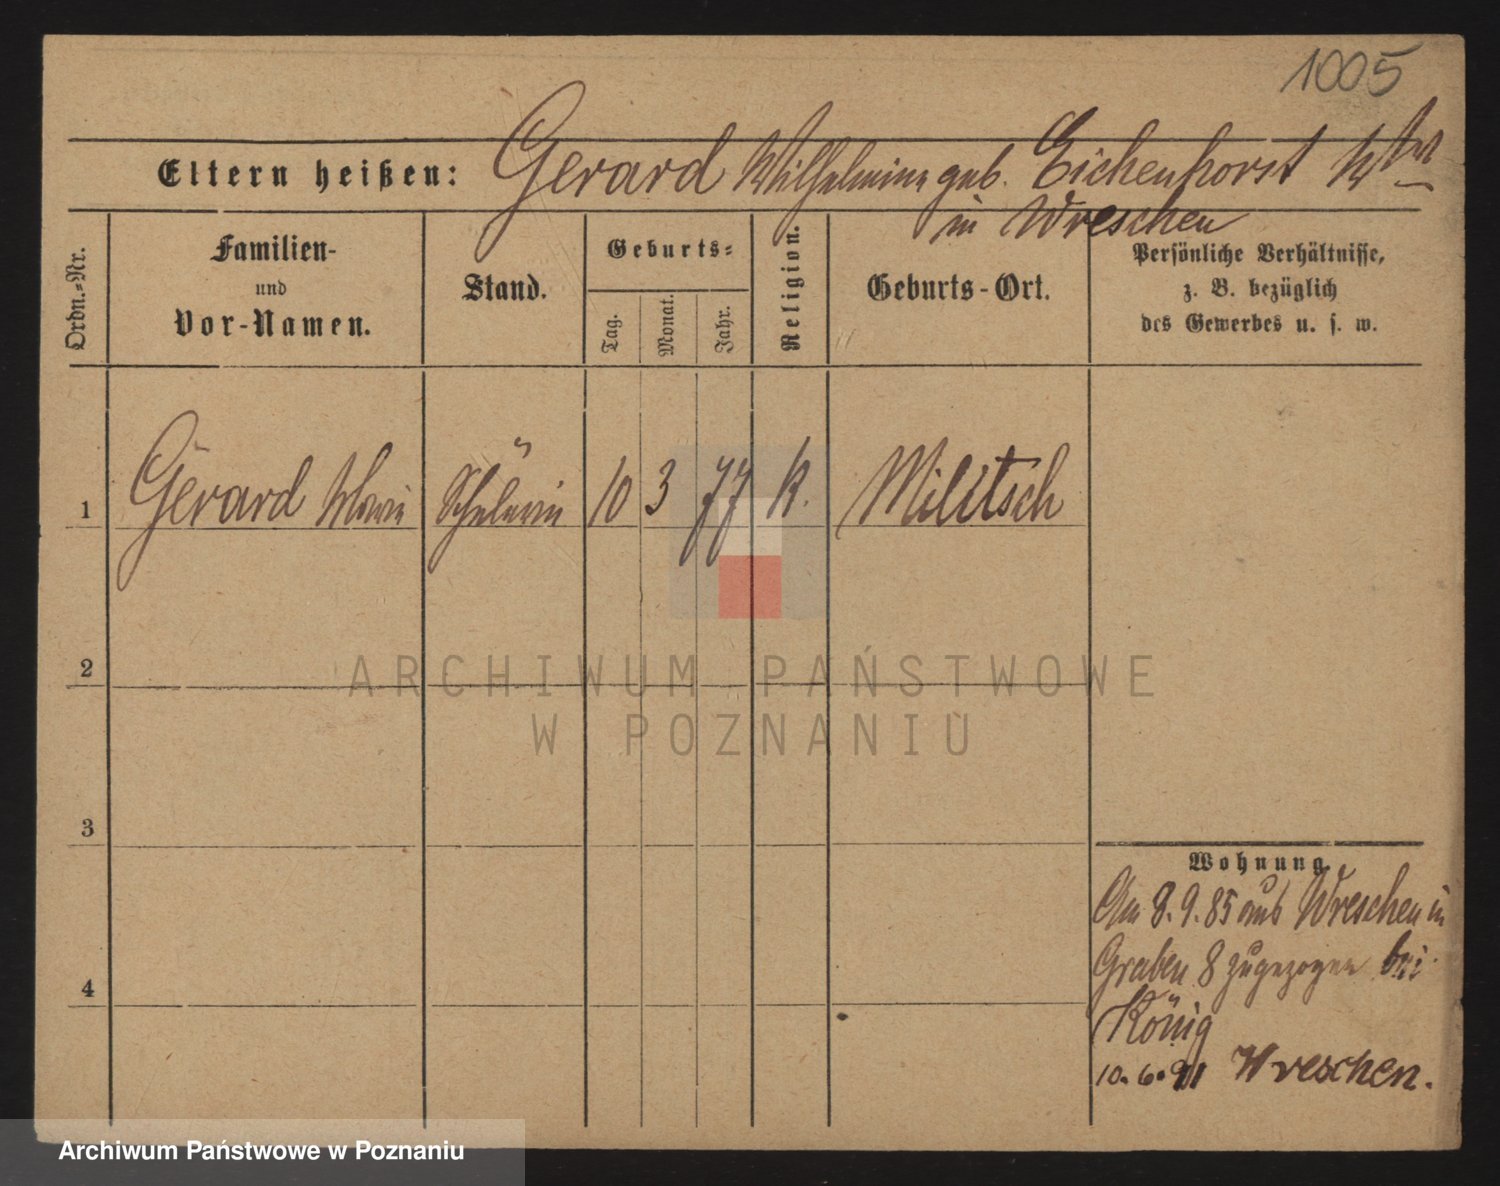 1005
Eltern heißen: Gerard Wilhelmine geb. Eichenhorst Wwe
in Wreschen
Ordn.-Nr.
Familien-
und
Vor-Namen.
Stand.
Geburts-
Tag.
Monat.
Jahr.
Religion.
Geburts-Ort.
Persönliche Verhältnisse,
z. B. bezüglich
des Gewerbes u. s. w.
1 Gerard Marie Schülerin 10 3 77 k. Militsch
2
3
4
Wohnung.
Am 8.9.85 aus Wreschen in
Graben 8 zugezogen bei
König
10.6.91 Wreschen.
ARCHIWUM PAŃSTWOWE
W POZNANIU
Archiwum Państwowe w Poznaniu